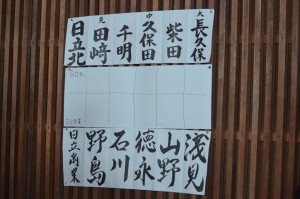 大 長久保
柴田
中 久保田
千明
先 田﨑
日立北
浅見
山野
徳永
石川
野島
日立商業